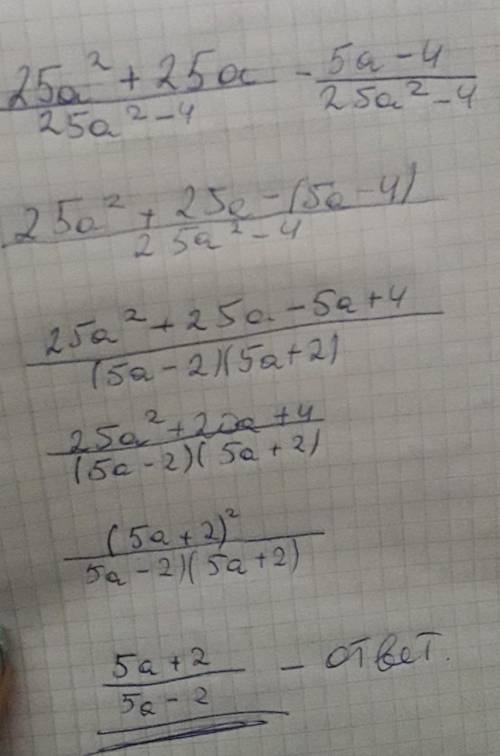 25a² + 25a / 25a² - 4 - 5a - 4 / 25a² - 4
25a² + 25a - (5a - 4) / 25a² - 4
25a² + 25a - 5a + 4 / (5a - 2)(5a + 2)
25a² + 20a + 4 / (5a - 2)(5a + 2)
(5a + 2)² / 5a - 2)(5a + 2)
5a + 2 / 5a - 2 - ответ.